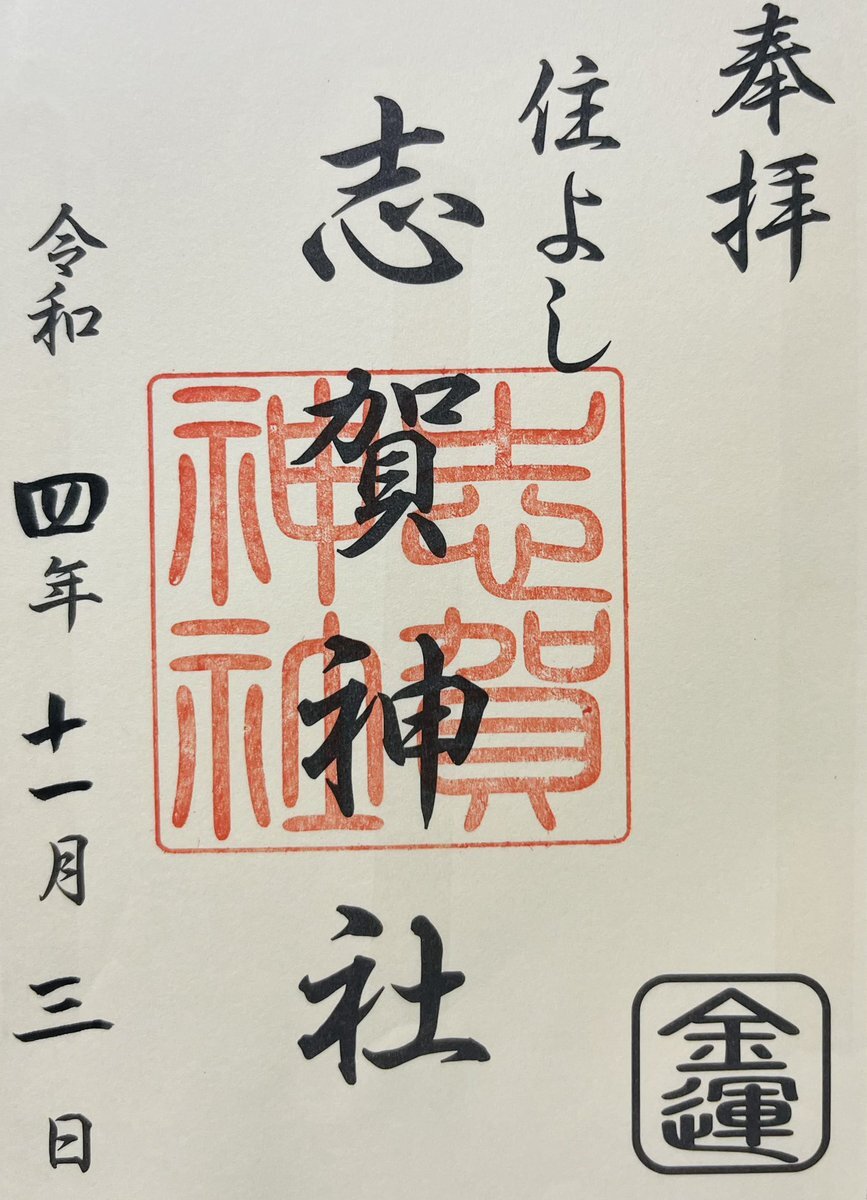 奉拝
住よし
志賀神社
志賀
神社
令和四年十一月三日
金運